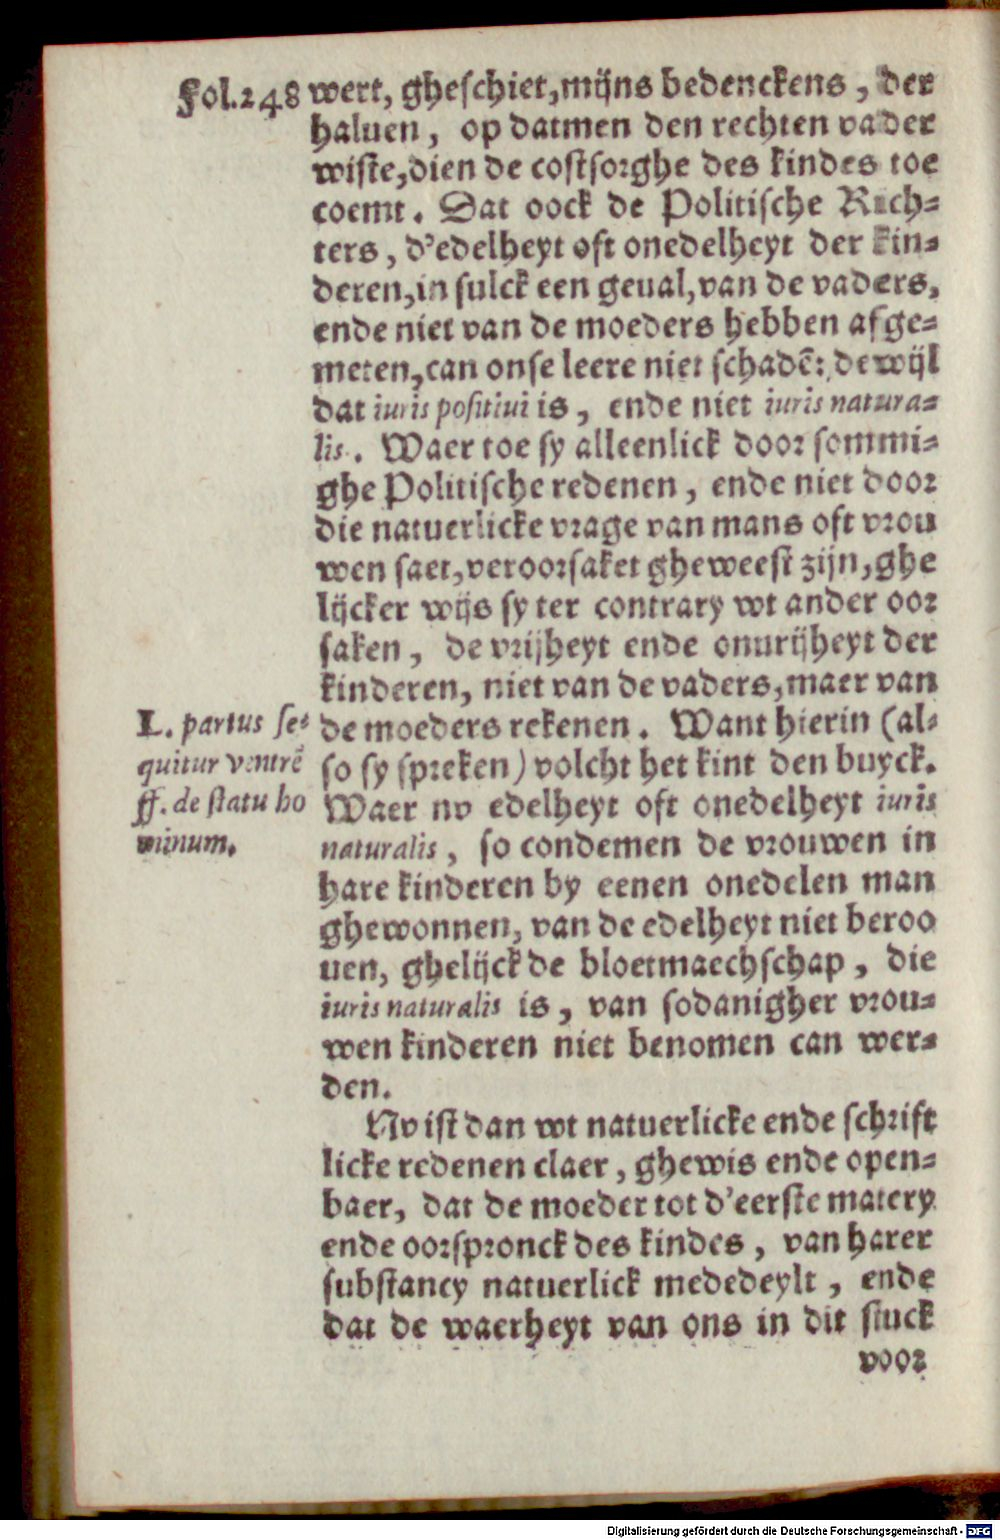 Fol.248 wert, gheschiet, mijns bedenckens, der
haluen, op datmen den rechten vader
wiste, dien de costsorghe des kindes toe
coemt. Dat oock de Politische Rech-
ters, d'edelheyt oft onedelheyt der kin-
deren, in sulck een geual, van de vaders,
ende niet van de moeders hebben afge-
meten, can onse leere niet schadē: dewijl
dat iuris positiui is, ende niet iuris natura-
lis. Waer toe sy alleenlick door sommi-
ghe Politische redenen, ende niet door
die natuerlicke vrage van mans oft vrou
wen saet, veroorsaket gheweest zijn, ghe
lijcker wijs sy ter contrary wt ander oor
saken, de vrijheyt ende onurijheyt der
kinderen, niet van de vaders, maer van
L. partus se-
quitur ventrē
ff. de statu ho
minum.
de moeders rekenen. Want hierin (al-
so sy spreken) volcht het kint den buyck.
Waer nv edelheyt oft onedelheyt iuris
naturalis, so condemen de vrouwen in
hare kinderen by eenen onedelen man
ghewonnen, van de edelheyt niet beroo
uen, ghelijck de bloetmaechschap, die
iuris naturalis is, van sodanigher vrou-
wen kinderen niet benomen can wer-
den.
Nv ist dan wt natuerlicke ende schrift
licke redenen claer, ghewis ende open-
baer, dat de moeder tot d'eerste matery
ende oorspronck des kindes, van harer
substancy natuerlick mededeylt, ende
dat de waerheyt van ons in dit stuck
voor
Digitalisierung gefördert durch die Deutsche Forschungsgemeinschaft - DFG